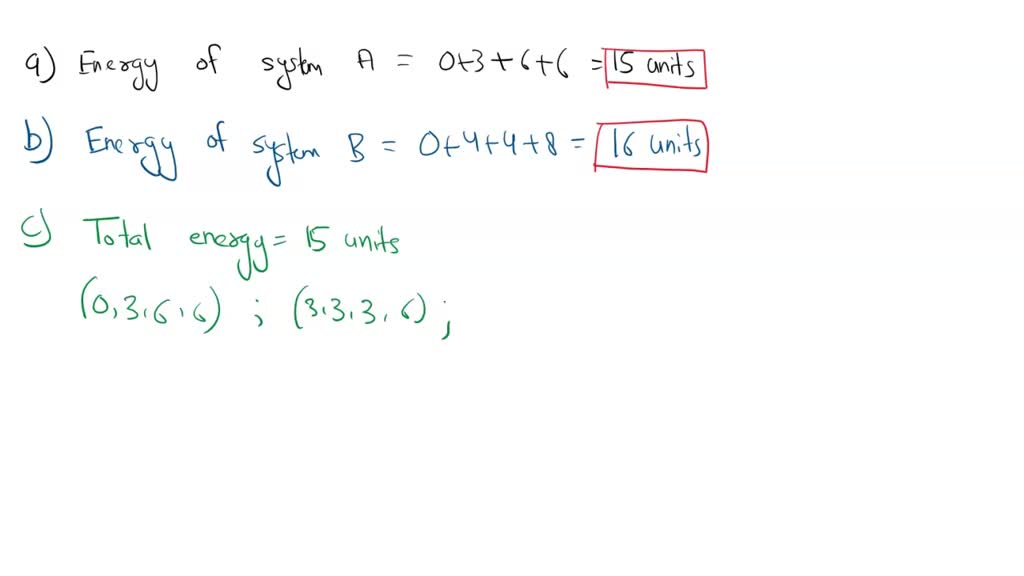 a) Energy of system A = 0+3+6+6 = 15 units
b) Energy of system B = 0+4+4+8 = 16 units
c) Total energy = 15 units
(0,3,6,6) ; (3,3,3,6) ;